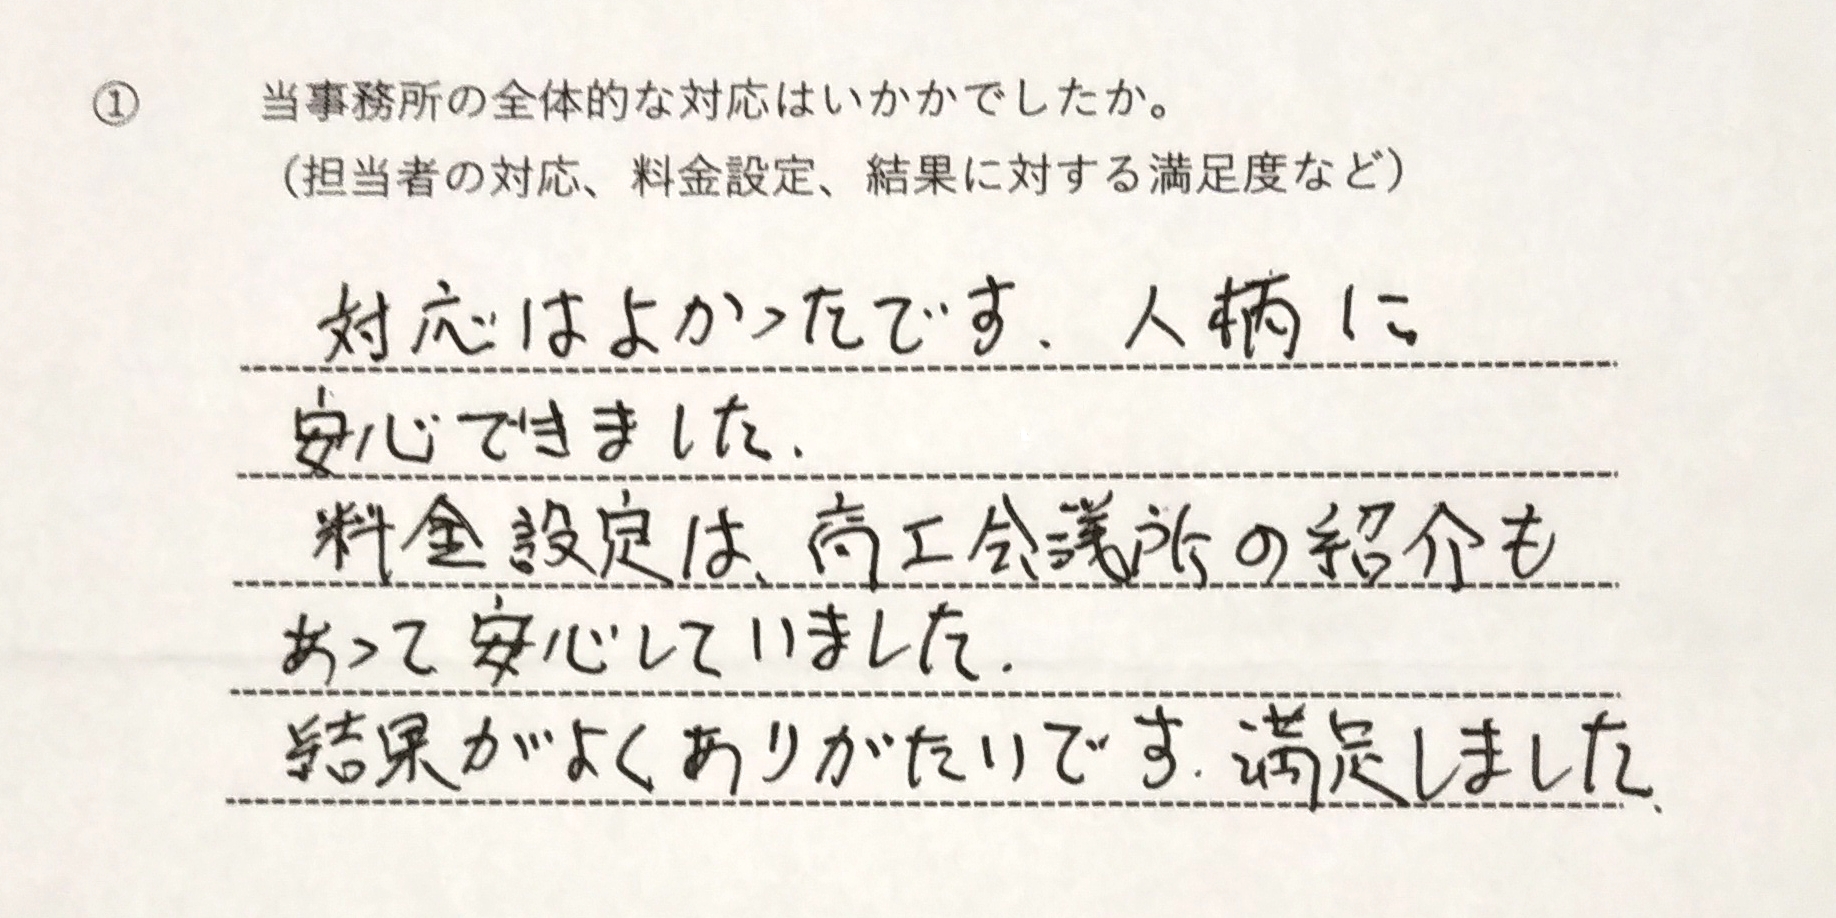 ① 当事務所の全体的な対応はいかかでしたか。
（担当者の対応、料金設定、結果に対する満足度など）
対応はよかったです. 人柄に
安心できました.
料金設定は、商工会議所の紹介も
あって安心していました.
結果がよくありがたいです. 満足しました.